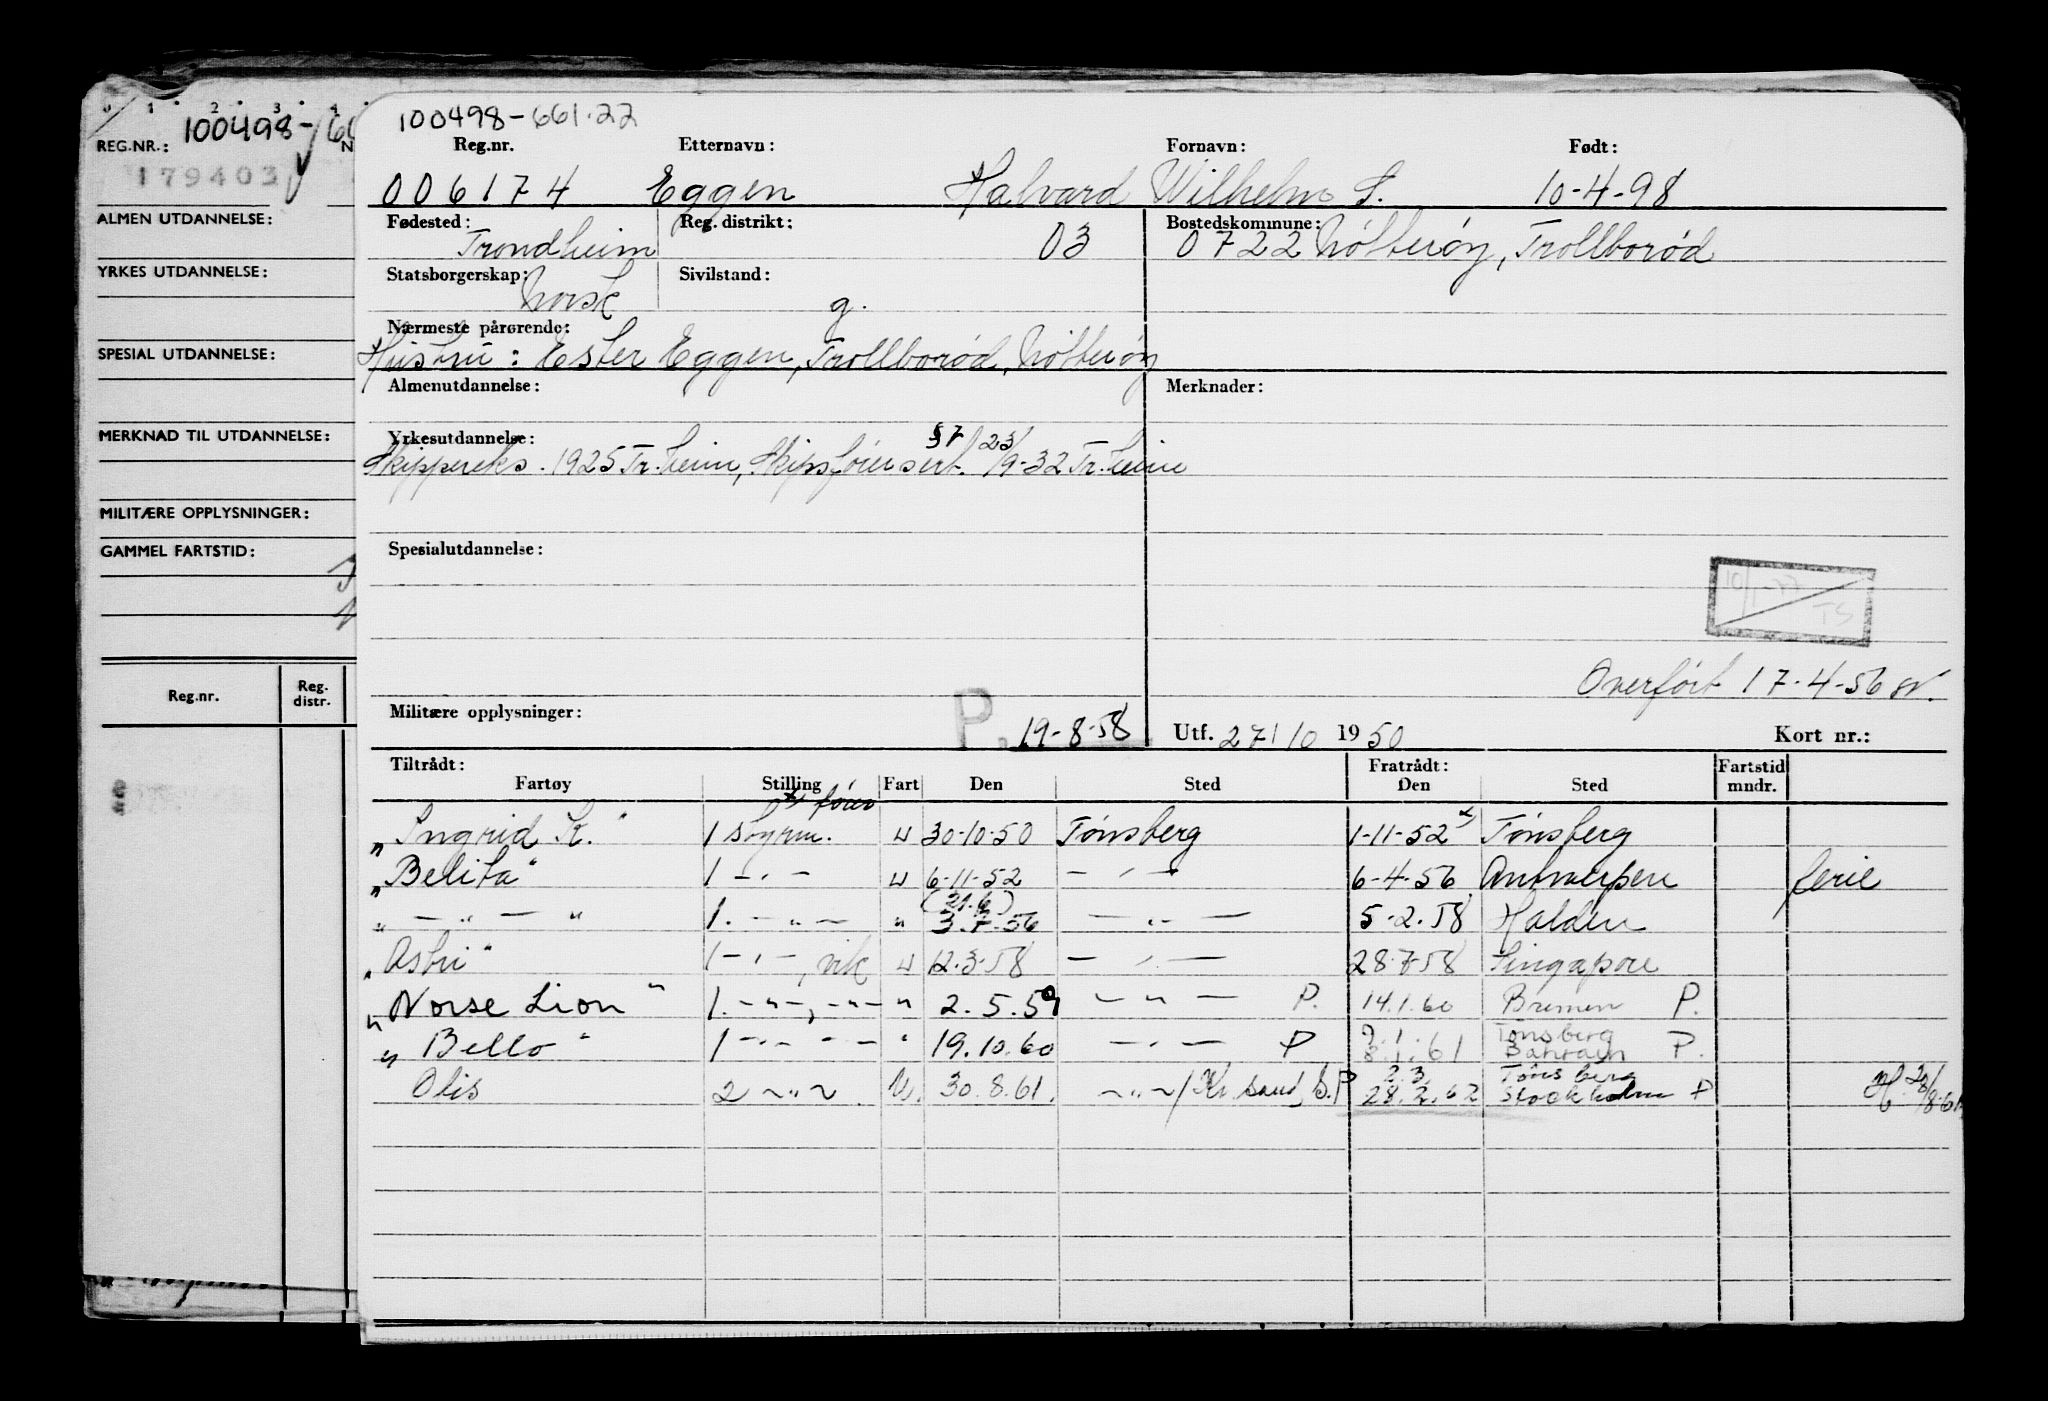 0 1 2 3 4
REG.NR.: 100498-
179403
ALMEN UTDANNELSE:
YRKES UTDANNELSE:
SPESIAL UTDANNELSE:
MERKNAD TIL UTDANNELSE:
MILITÆRE OPPLYSNINGER:
GAMMEL FARTSTID:
Reg.nr. Reg. distr.
100498-661.22
Reg.nr. Etternavn: Fornavn: Født:
006174 Eggen Halvard Wilhelm S. 10-4-98
Fødested: Reg. distrikt: Bostedskommune:
Trondheim 03 0722 Nötteröy, Trollboröd
Statsborgerskap: Sivilstand:
Norsk g.
Nærmeste pårørende:
Hustru: Ester Eggen, Trollboröd, Nötteröy
Almenutdannelse: Merknader:
Yrkesutdannelse: §7
Skippereks. 1925 Tr.heim, Skipsförersert. 23/9-32 Tr.heim
Spesialutdannelse:
10/1-77 TS
Overfört 17-4-56
Militære opplysninger: P. 19-8-58 Utf. 27/10 1950 Kort nr.:
Tiltrådt: Fratrådt: Fartstid
Fartøy Stilling Fart Den Sted Den Sted mndr.
x förer
"Ingrid K." 1 styrm. u 30-10-50 Tönsberg 1-11-52 x Tönsberg
"Belita" 1 - " - u 6-11-52 - " - 6-4-56 Antwerpen ferie
" - " - " 1. - " - " (21.6) 3.7.56 - " - 5-2.58 Halden
"Astri" 1 - " -, vik u 12.3.58 - " - 28-7-58 Singapore
"Norse Lion" 1. - " -, - " - " 2.5.59 - " - P. 14.1.60 Bremen P.
"Bello" 1 - " - - " - " 19.10.60 - " - P 8.1.61 Tönsberg Bahrain P.
Olis 2 - " - U. 30.8.61. - " - / Kr.sand, S. P 2.3. 28.2.62 Tönsberg Stockholm P